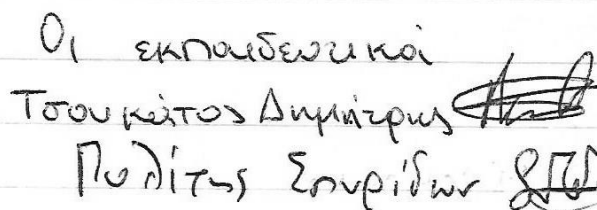 Οι εκπαιδευτικοί
Τσουκάτος Δημήτρης
Πολίτης Σπυρίδων